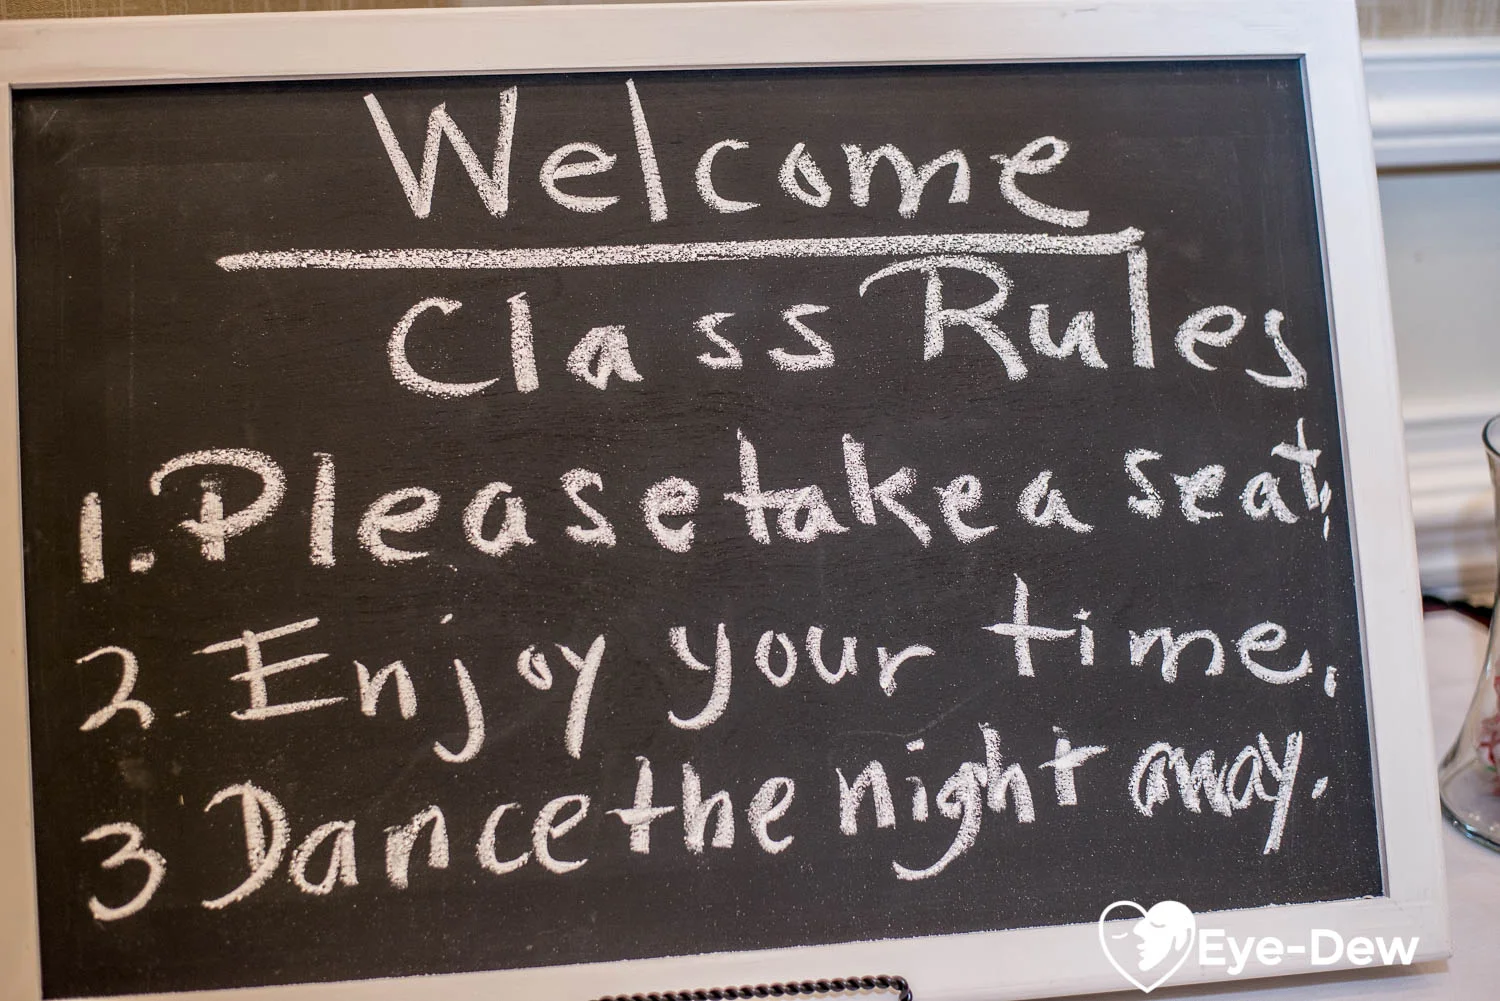 Welcome
Class Rules
1. Please take a seat.
2. Enjoy your time.
3 Dance the night away.
Eye-Dew